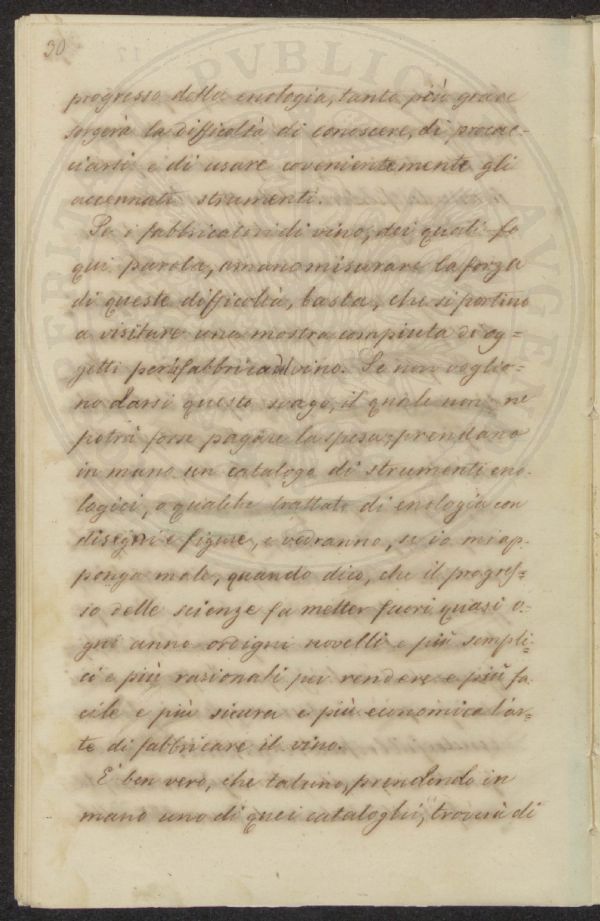 30
progresso della enologia, tanto più grave
sorgerà la difficoltà di conoscere, di procac-
ciarsi e di usare covenientemente gli
accennati strumenti.
Se i fabbricatori di vino, dei quali fo
qui parola, amano misurare la forza
di queste difficoltà, basta, che si portino
a visitare una mostra compiuta di og=
getti per fabbricare vino. Se non voglio-
no darsi questo svago, il quale non ne
potrà forse pagare la spesa, prendano
in mano un catalogo di strumenti eno-
logici, o qualche trattato di enologia con
disegni e figure, e vedranno, se io mi ap-
ponga male, quando dico, che il progres=
so delle scienze fa metter fuori quasi o-
gni anno ordigni novelli e più sempli-
ci e più razionali per rendere e più fa-
cile e più sicura e più economica l'ar=
te di fabbricare il vino.
E' ben vero, che taluno, prendendo in
mano uno di quei cataloghi, troverà di
PVBLIC
AVGENDO